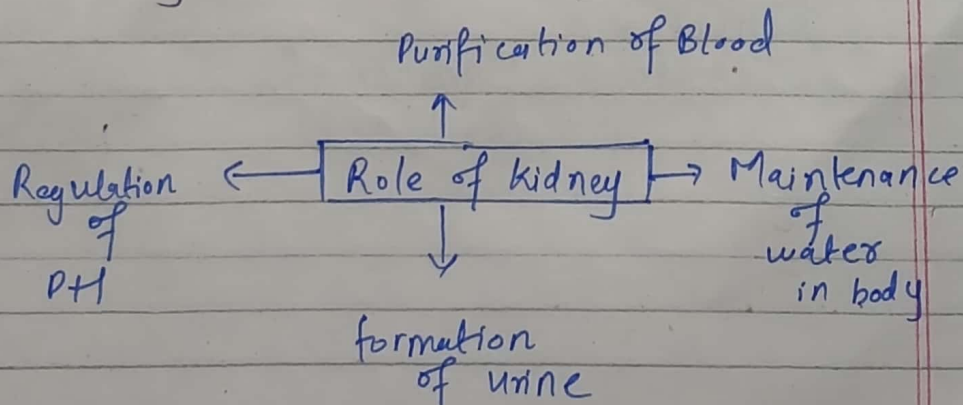 Purification of Blood
Regulation
of
PH
Role of kidney
Maintenance
of
water
in body
formation
of urine